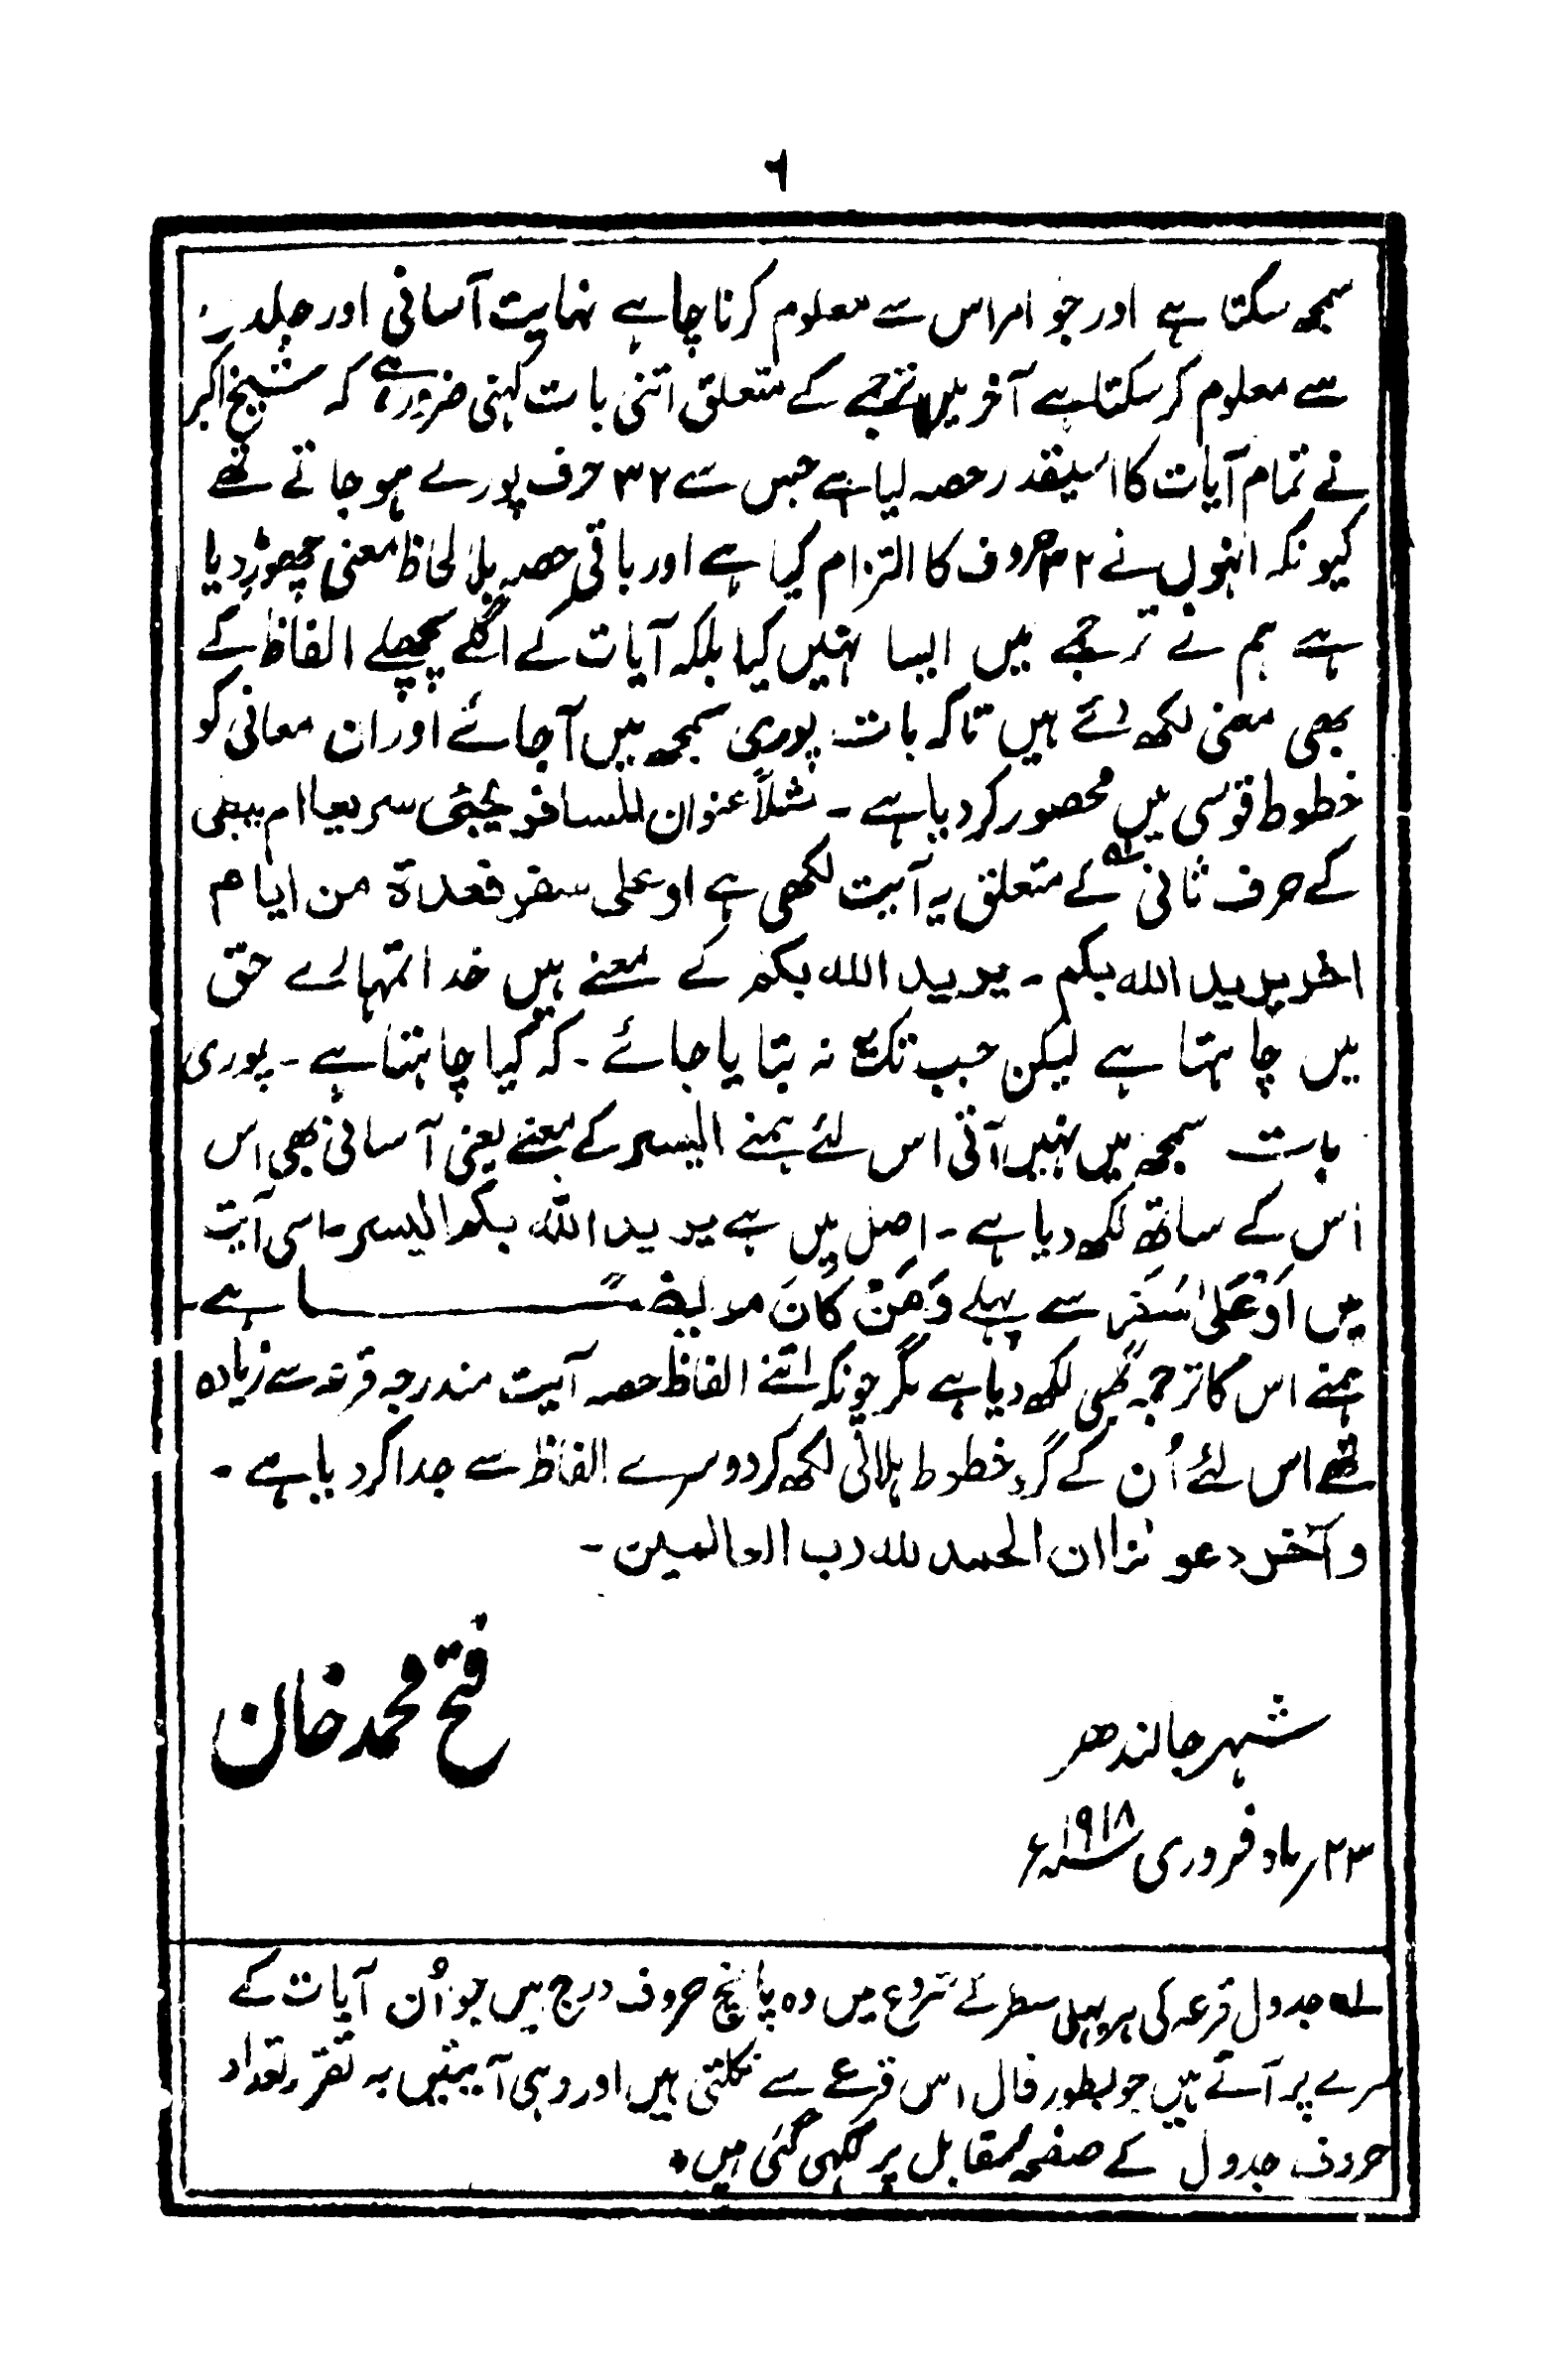 ٦
سمجھ سکتا ہے اور جو امر اس سے معلوم کرنا چاہے نہایت آسانی اور جلدی
سے معلوم کرسکتا ہے آخر میں ترجمے کے متعلق اتنی بات کہنی ضرور ہے کہ شیخ اکبر
نے تمام آیات کا اسیقدر حصہ لیا ہے جس سے ۳۲ حرف پورے ہو جاتے تھے
کیونکہ انہوں نے ۳۲ حروف کا التزام کیا ہے اور باقی حصہ بلا لحاظ معنی چھوڑ دیا
ہے ہم نے ترجمے میں ایسا نہیں کیا بلکہ آیات کے اگلے پچھلے الفاظ کے
بھی معنی لکھ دئے ہیں تاکہ بات پوری سمجھ میں آجائے اور ان معانی کو
خطوط قوسی میں محصور کردیا ہے ۔ مثلاً عنوان للمسافر یجئی سریعا ام یبطی
کے حرف ثانی ؎۱ کے متعلق یہ آیت لکھی ہے او علی سفر فعدة من ایام
اخر یرید الله بکم ۔ یرید الله بکم کے معنے ہیں خدا تمہارے حق
میں چاہتا ہے لیکن جب تک یہ نہ بتایا جائے ۔ کہ کیا چاہتا ہے ۔ پوری
بات سمجھ میں نہیں آتی اس لئے ہمنے الیسر کے معنے یعنی آسانی بھی اس
اس کے ساتھ لکھ دیا ہے ۔ اصل میں ہے یرید اللہ بکم الیسر ۔ اسی آیت
میں اَوْ عَلیٰ سَفَرٍ سے پہلے وَمَنْ كَانَ مریضًا ہے ۔
ہمنے اس کا ترجمہ بھی لکھ دیا ہے مگر چونکہ اتنے الفاظ حصہ آیت مندرجہ قرعہ سے زیادہ
تھے اس لئے اُن کے گرد خطوط ہلالی لکھ کر دوسرے الفاظ سے جدا کردیا ہے ۔
وآخر دعونا ان الحمد لله رب العالمین ۔
فتح محمد خان
شہر جالندھر
۲۳ ؍ ماہ فروری ۱۹۱۸؁ء
؎۱ جدول قرعہ کی ہر پہلی سطر کے شروع میں وہ پانچ حروف درج ہیں جو اُن آیات کے
سرے پر آتے ہیں جو بطور فال اس قرعے سے نکلتی ہیں اور وہی آیتیں بہ تقرر تعداد
حروف جدول کے صفحہ مقابل پر لکھی گئی ہیں ۔